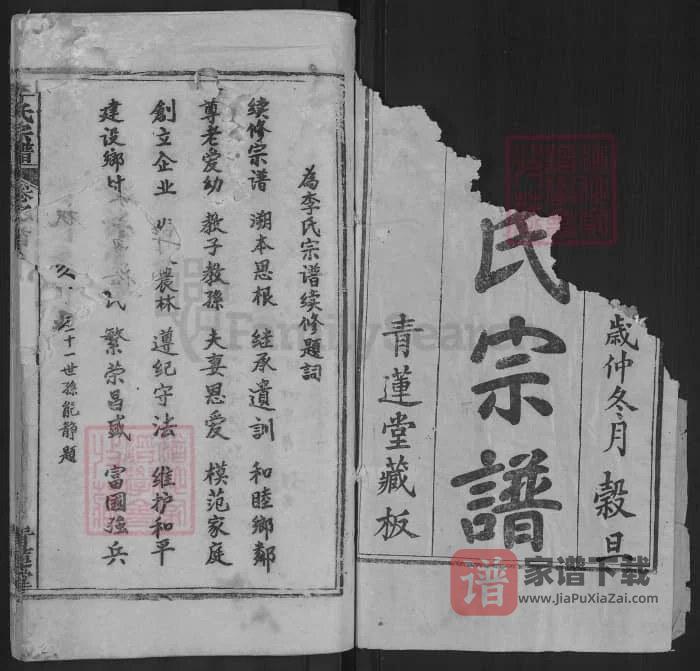 歲仲冬月 穀旦
氏宗譜
青蓮堂藏板
為李氏宗谱续修题詞
续修宗谱 溯本思根 继承遺訓 和睦鄉鄰
尊老爱幼 教子教孫 夫妻恩爱 模范家庭
創立企业 農林 遵纪守法 维护和平
建设鄉 民 繁荣昌盛 富國强兵
三十一世孫能静题
氏宗譜
家谱下载
www.JiaPuXiaZai.com
谱
FamilySearch